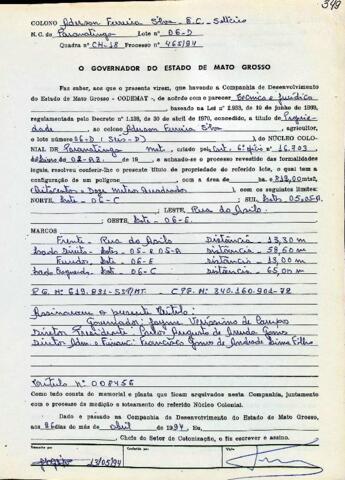 349
COLONO Aderson Ferreira Silva B.C. - Solteiro
N.C. de Paranatinga Lote nº 06-D
Quadra nº CH-18 Processo nº 465/94
O GOVERNADOR DO ESTADO DE MATO GROSSO
Faz saber, aos que o presente virem, que havendo a Companhia de Desenvolvimento
do Estado de Mato Grosso - CODEMAT -, de acôrdo com o parecer Técnico e Jurídico
baseado na Lei nº 2.933, de 10 de junho de 1969,
regulamentada pelo Decreto nº 1.138, de 30 de abril de 1970, concedido, a título de Proprie
dade, ao colono Aderson Ferreira Silva, agricultor,
o lote número 06-D (Seis-D) do NÚCLEO COLO-
NIAL DE Paranatinga Mat. criado pela Cart. 6º ofício nº 16.903
de 19 e achando-se o processo revestido das formalidades
legais, resolve conferir-lhe o presente título de propriedade do referido lote, o qual tem a
configuração de um polígono com a área de ha 812,00m2
(Oitocentos e Doze Metros Quadrados) com os seguintes limites:
NORTE, Lote - 06-C SUL Lotes 05.05-A
LESTE, Rua do Asilo.
OESTE, Lote - 06-E.
MARCOS
Frente - Rua do Asilo Distância - 13,30 m
Lado Direito - Lotes - 05-E 05-A Distância - 58,50 m
Fundos - Lote - 06-E Distância - 13,00 m
Lado Esquerdo - Lote - 06-C Distância - 65,00 m
R.G. Nº 619.831-SSP/MT. - C.P.F. Nº 340.160.901-78
Assinaram o presente título:
Governador: Jayme Veríssimo de Campos
Diretor Presidente: Carlos Augusto de Arruda Gomes
Diretor Adm. e Financ: Francisco Gomes de Andrade Lima Filho
Título Nº 008456
Como tudo consta do memorial e planta que ficam arquivados nesta Companhia, juntamente
com o processo de medição e loteamento do referido Núcleo Colonial.
Dado e passado na Companhia de Desenvolvimento do Estado de Mato Grosso,
aos 26 dias do mês de abril de 1994, Eu,
Chefe do Setor de Colonização, o fiz escrever e assino.
Conferido Visto
13/05/94